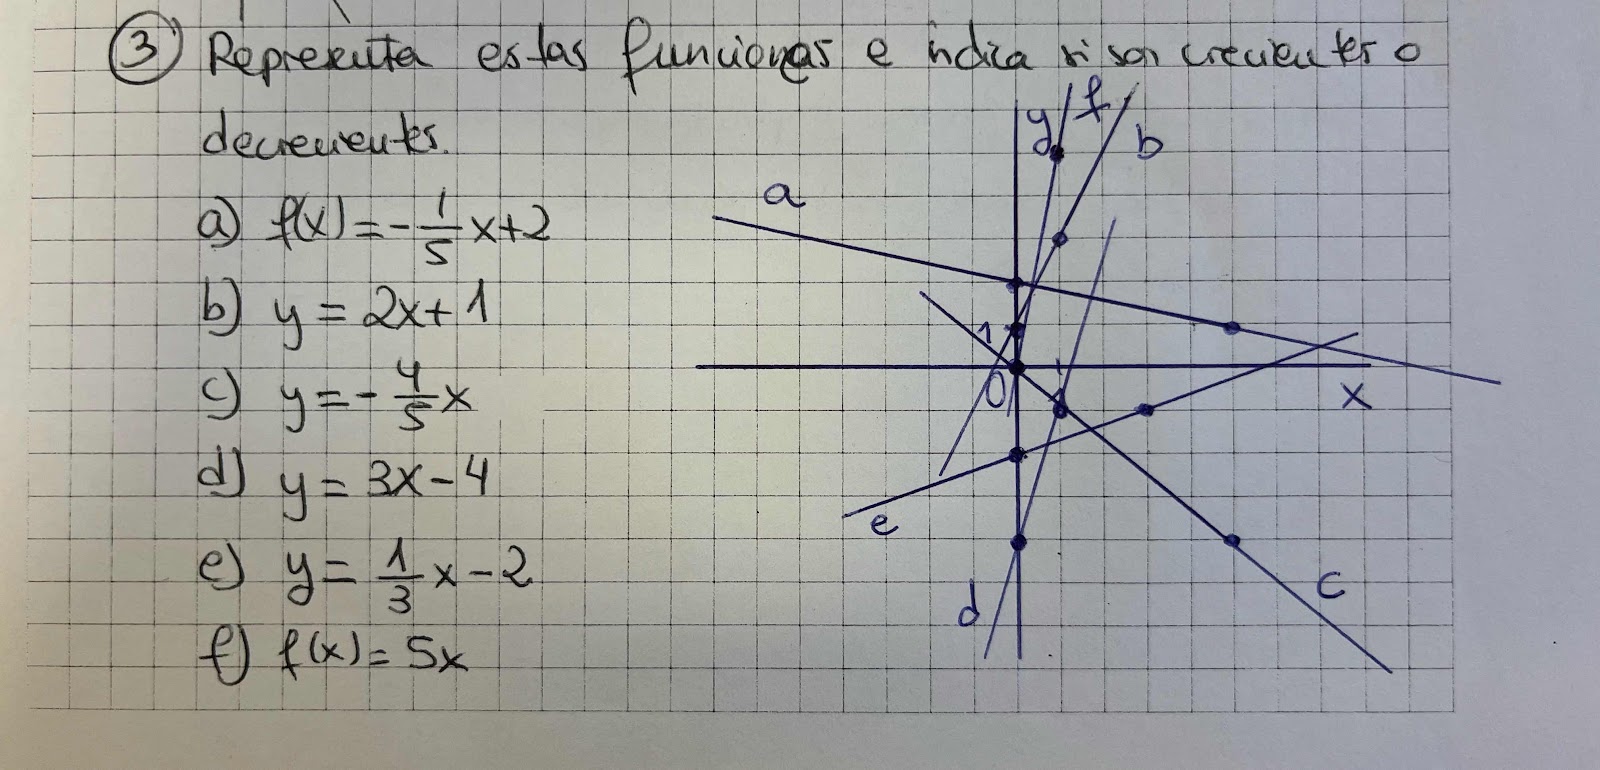 ③ Representa estas funciones e indica si son crecientes o
decrecientes.
a) f(x)=-1/5x+2
b) y=2x+1
c) y=-4/5x
d) y=3x-4
e) y=1/3x-2
f) f(x)=5x
y f
b
a
1
0 1
x
e
c
d